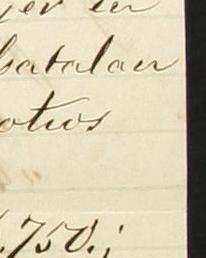 yer en
batalan
otros
.750.;